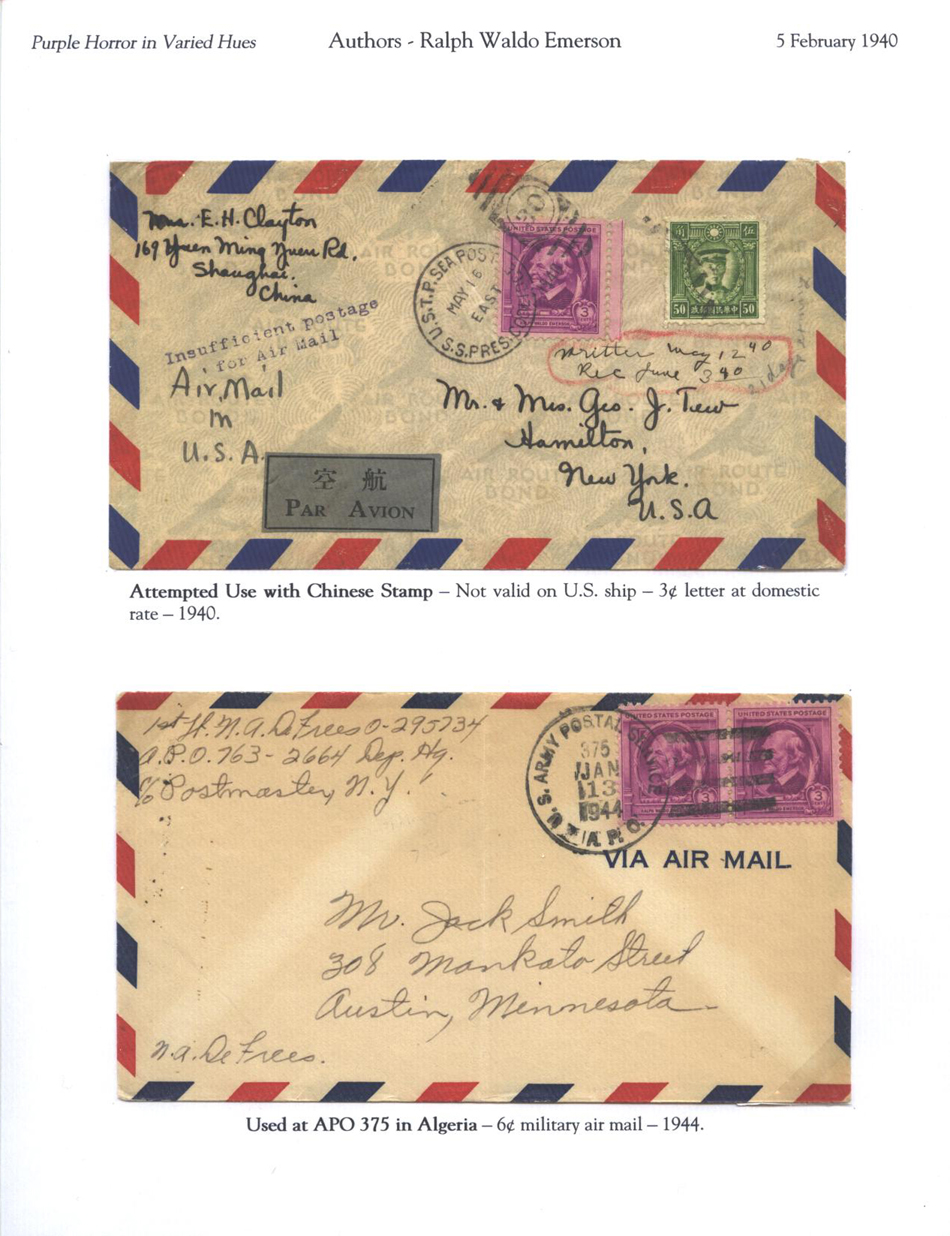 Purple Horror in Varied Hues
Authors - Ralph Waldo Emerson
5 February 1940
Mrs. E. H. Clayton
169 Yuen Ming Yuen Rd.
Shanghai.
China
Insufficient postage
for Air Mail
Air Mail
in
U.S.A.
空 航
PAR AVION
U.S.T.P. SEA POST
MAY 16
EAST
S.S. PRES.
UNITED STATES POSTAGE
3
50 50
Written May 12 40
Rec June 3 40
21 days
Mr. & Mrs. Geo. J. Tew
Hamilton,
New York.
U.S.A
AIR ROUTE
BOND
Attempted Use with Chinese Stamp – Not valid on U.S. ship – 3¢ letter at domestic
rate – 1940.
1st Lt. N. A. DeFrees O-295734
A.P.O. 763 - 2664 Dep. Hq.
c/o Postmaster, N.Y.
U.S. ARMY POSTAL SERVICE
375
JAN
13
1944
A.P.O.
UNITED STATES POSTAGE
3
UNITED STATES POSTAGE
3
VIA AIR MAIL
Mr. Jack Smith
308 Mankato Street
Austin, Minnesota
N. A. DeFrees.
Used at APO 375 in Algeria – 6¢ military air mail – 1944.